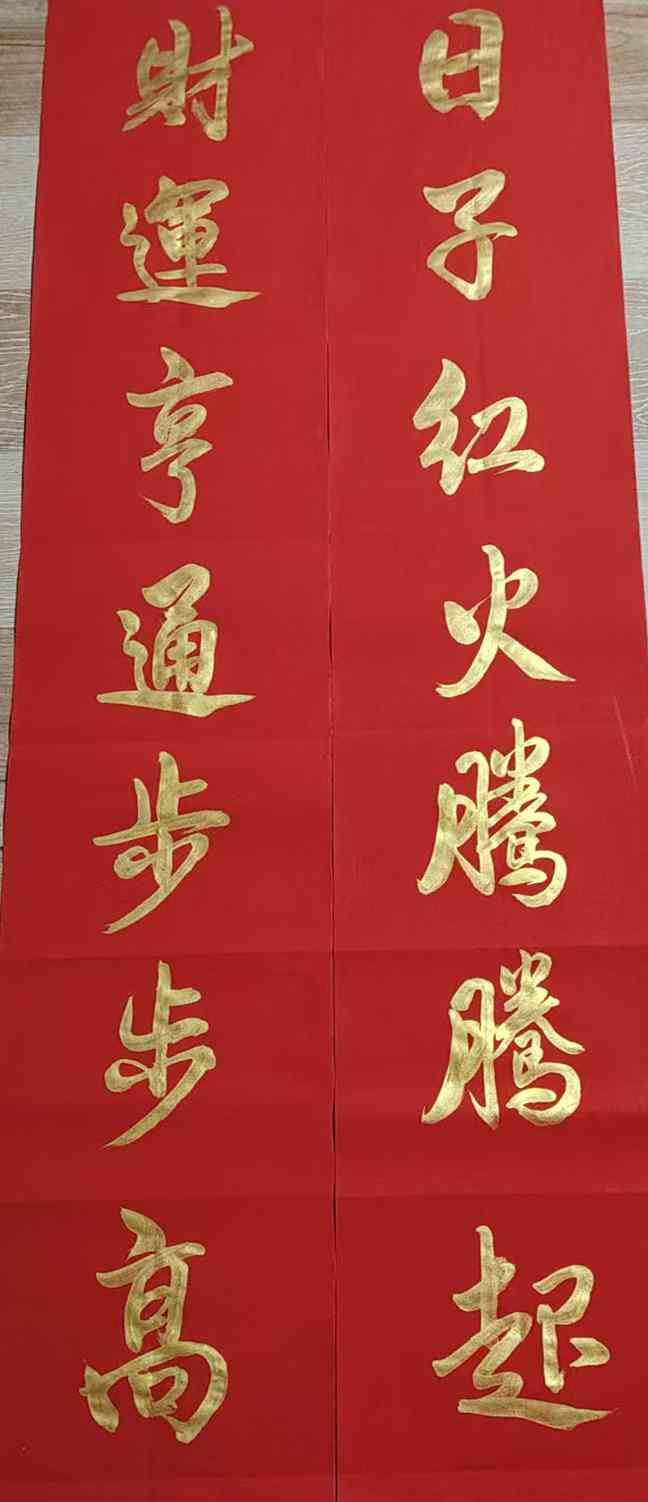 日子红火騰騰起
財運亨通步步高